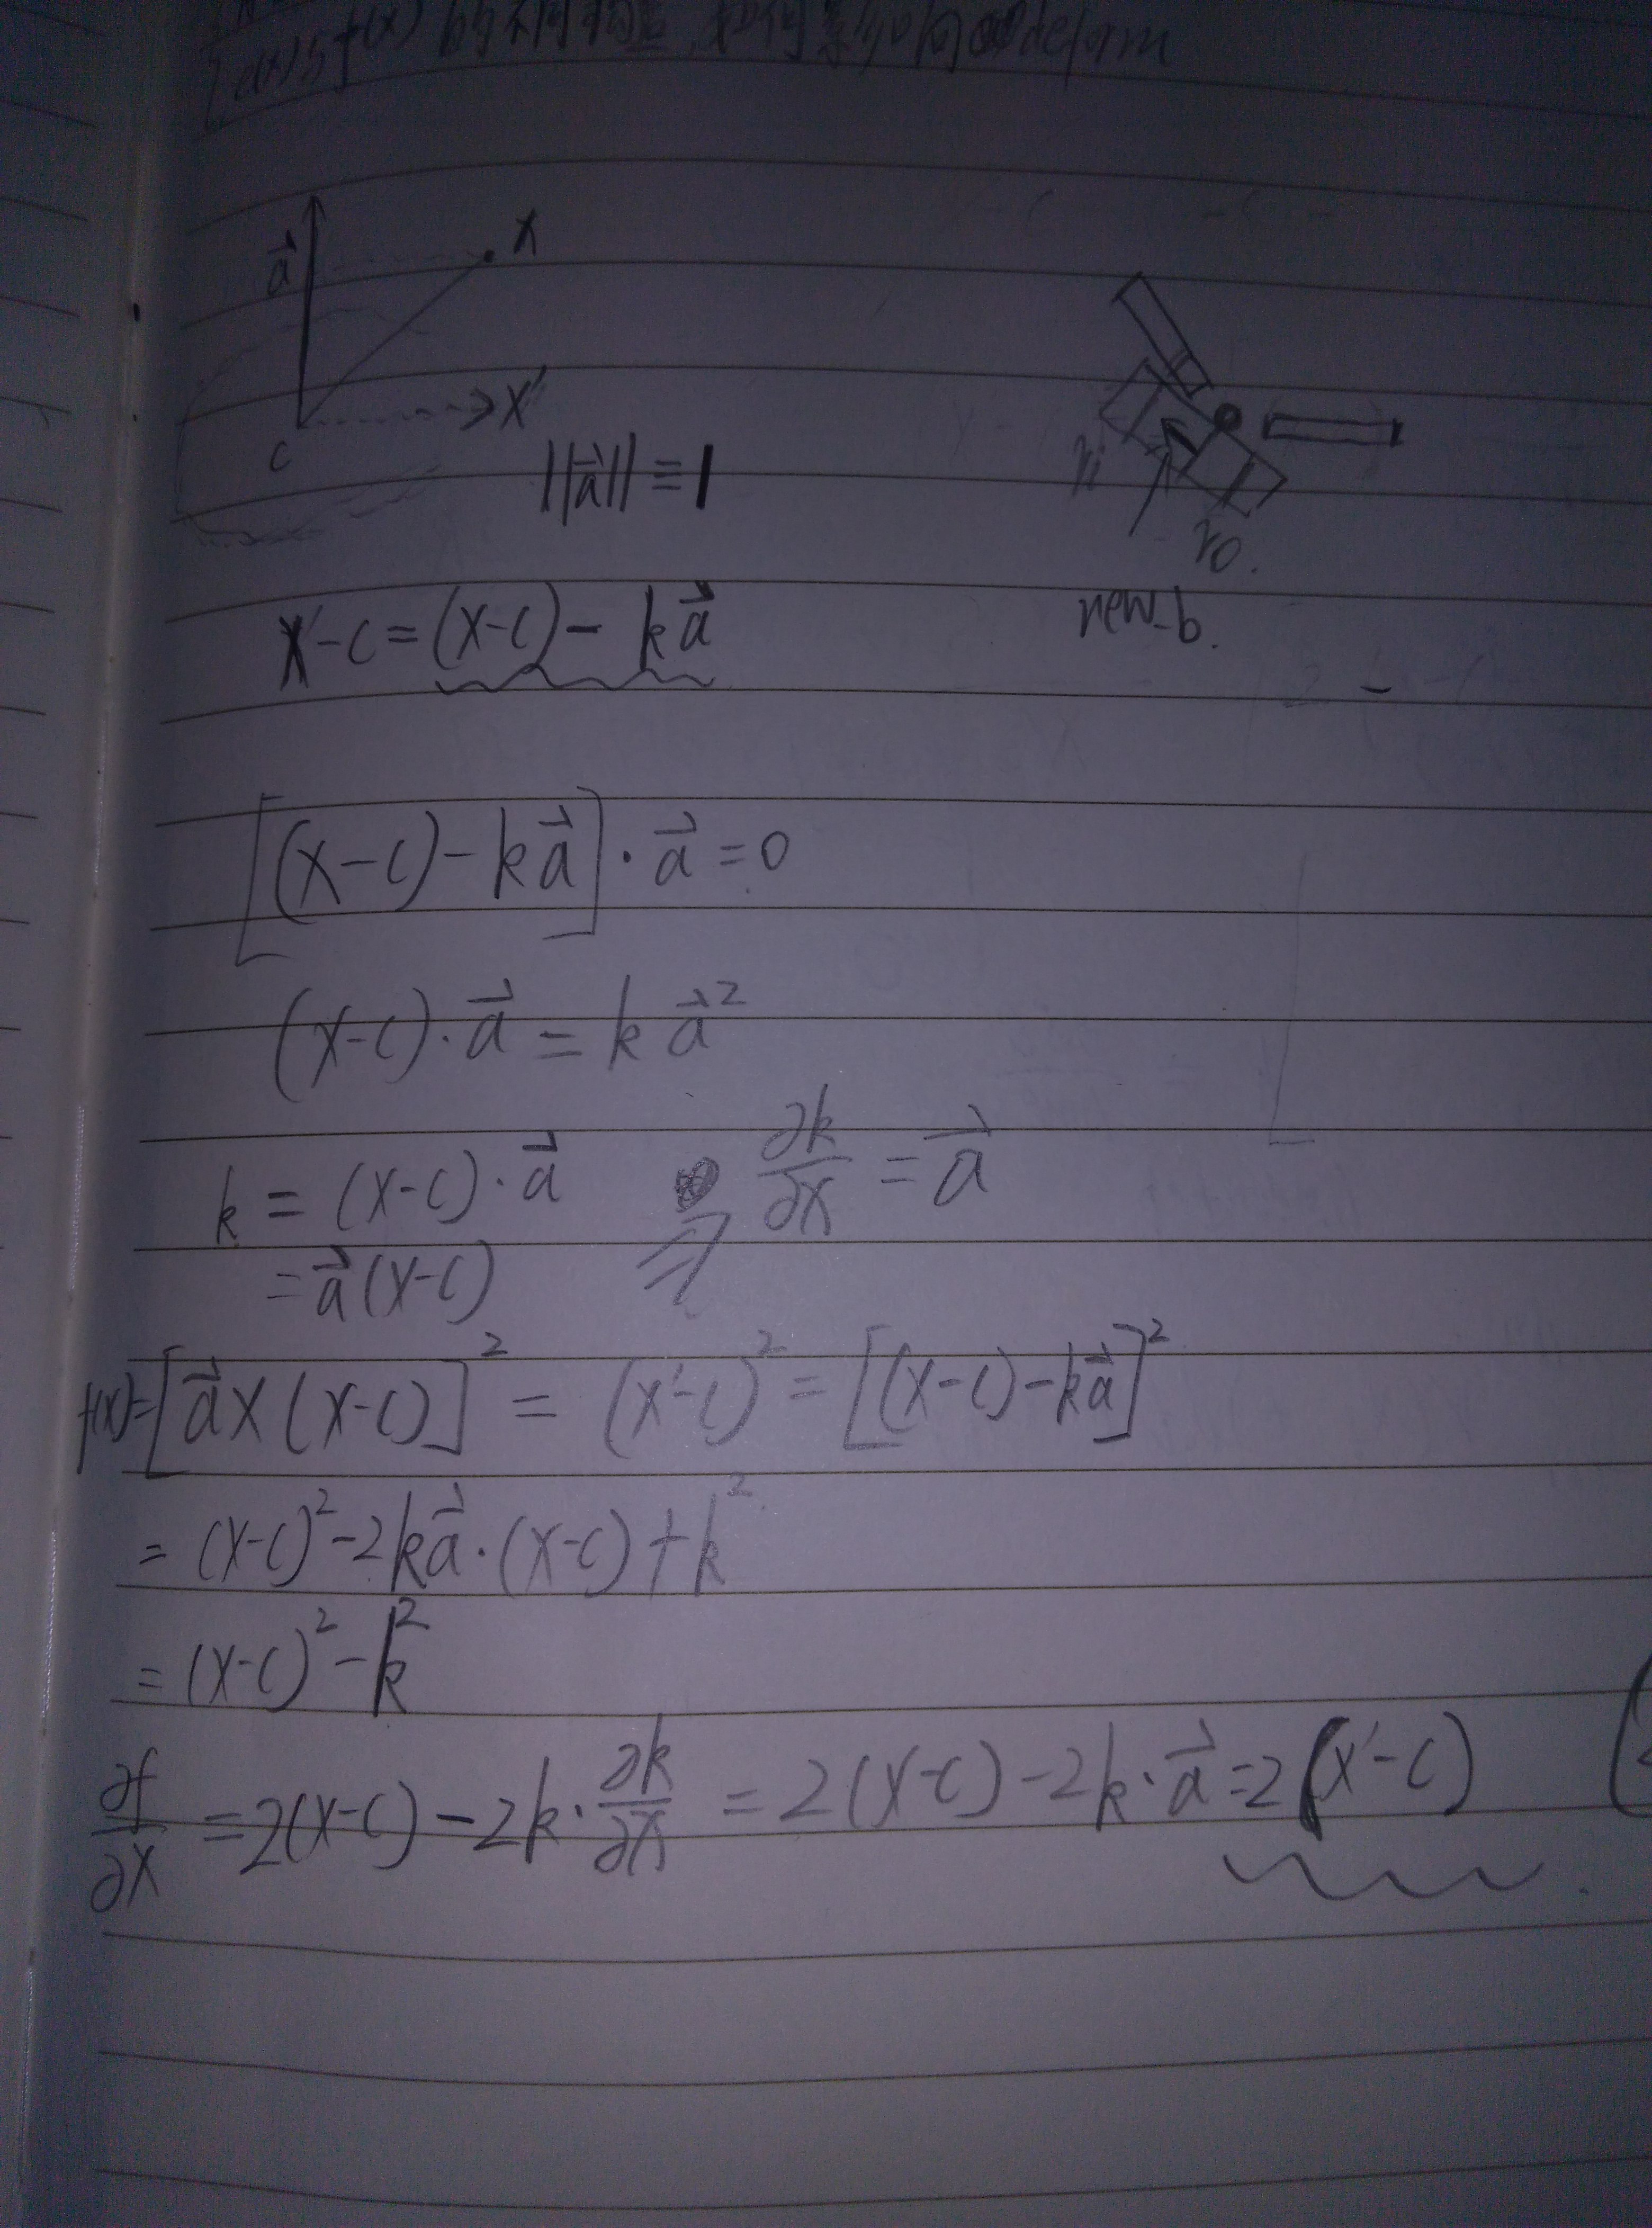 e(x)与f(x)的不同 如何 deform
a⃗ x
c x'
||a⃗|| ≡ 1
ri
ro.
new-b.
x'-c = (x-c) - ka⃗
[(x-c) - ka⃗] · a⃗ = 0
(x-c) · a⃗ = k a⃗²
k = (x-c) · a⃗ ⇒ ∂k/∂x = a⃗
= a⃗(x-c)
f(x) = [a⃗ × (x-c)]² = (x'-c)² = [(x-c) - ka⃗]²
= (x-c)² - 2ka⃗ · (x-c) + k²
= (x-c)² - k²
∂f/∂x = 2(x-c) - 2k · ∂k/∂x = 2(x-c) - 2k · a⃗ = 2(x'-c)